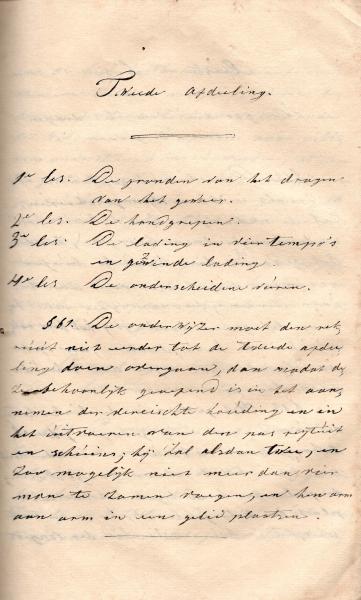 Tweede Afdeeling.
1e les. De gronden van het dragen
van het geweer.
2e les. De handgrepen.
3e les. De lading in vier tempo's
en gezwinde lading.
4e les De onderscheidene vuren.
§ 61. De onderwijzer moet den rek,
ruut niet eerder tot de tweede afdee
ling doen overgaan, dan nadat de
ze behoorlijk geoefend is in het aan,
nemen der vereischte houding en in
het uitvoeren van den pas regtuit
en schuins; hij zal alsdan twee, en
zoo mogelijk niet meer dan vier
man te zamen voegen, en hen arm
aan arm in een gelid plaatsen.